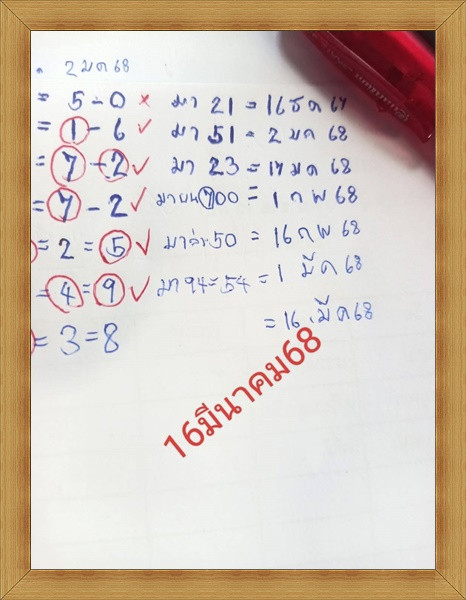 2 มค 68
= 5 - 0 × มา 21 = 16 ธค 67
= 1 - 6 ✓ มา 51 = 2 มค 68
= 7 - 2 ✓ มา 23 = 17 มค 68
= 7 - 2 ✓ มาบน 700 = 1 กพ 68
= 2 = 5 ✓ มาล่าง 50 = 16 กพ 68
= 4 = 9 ✓ มา 94 = 54 = 1 มีค 68
= 3 = 8 = 16 มีค 68
16มีนาคม68